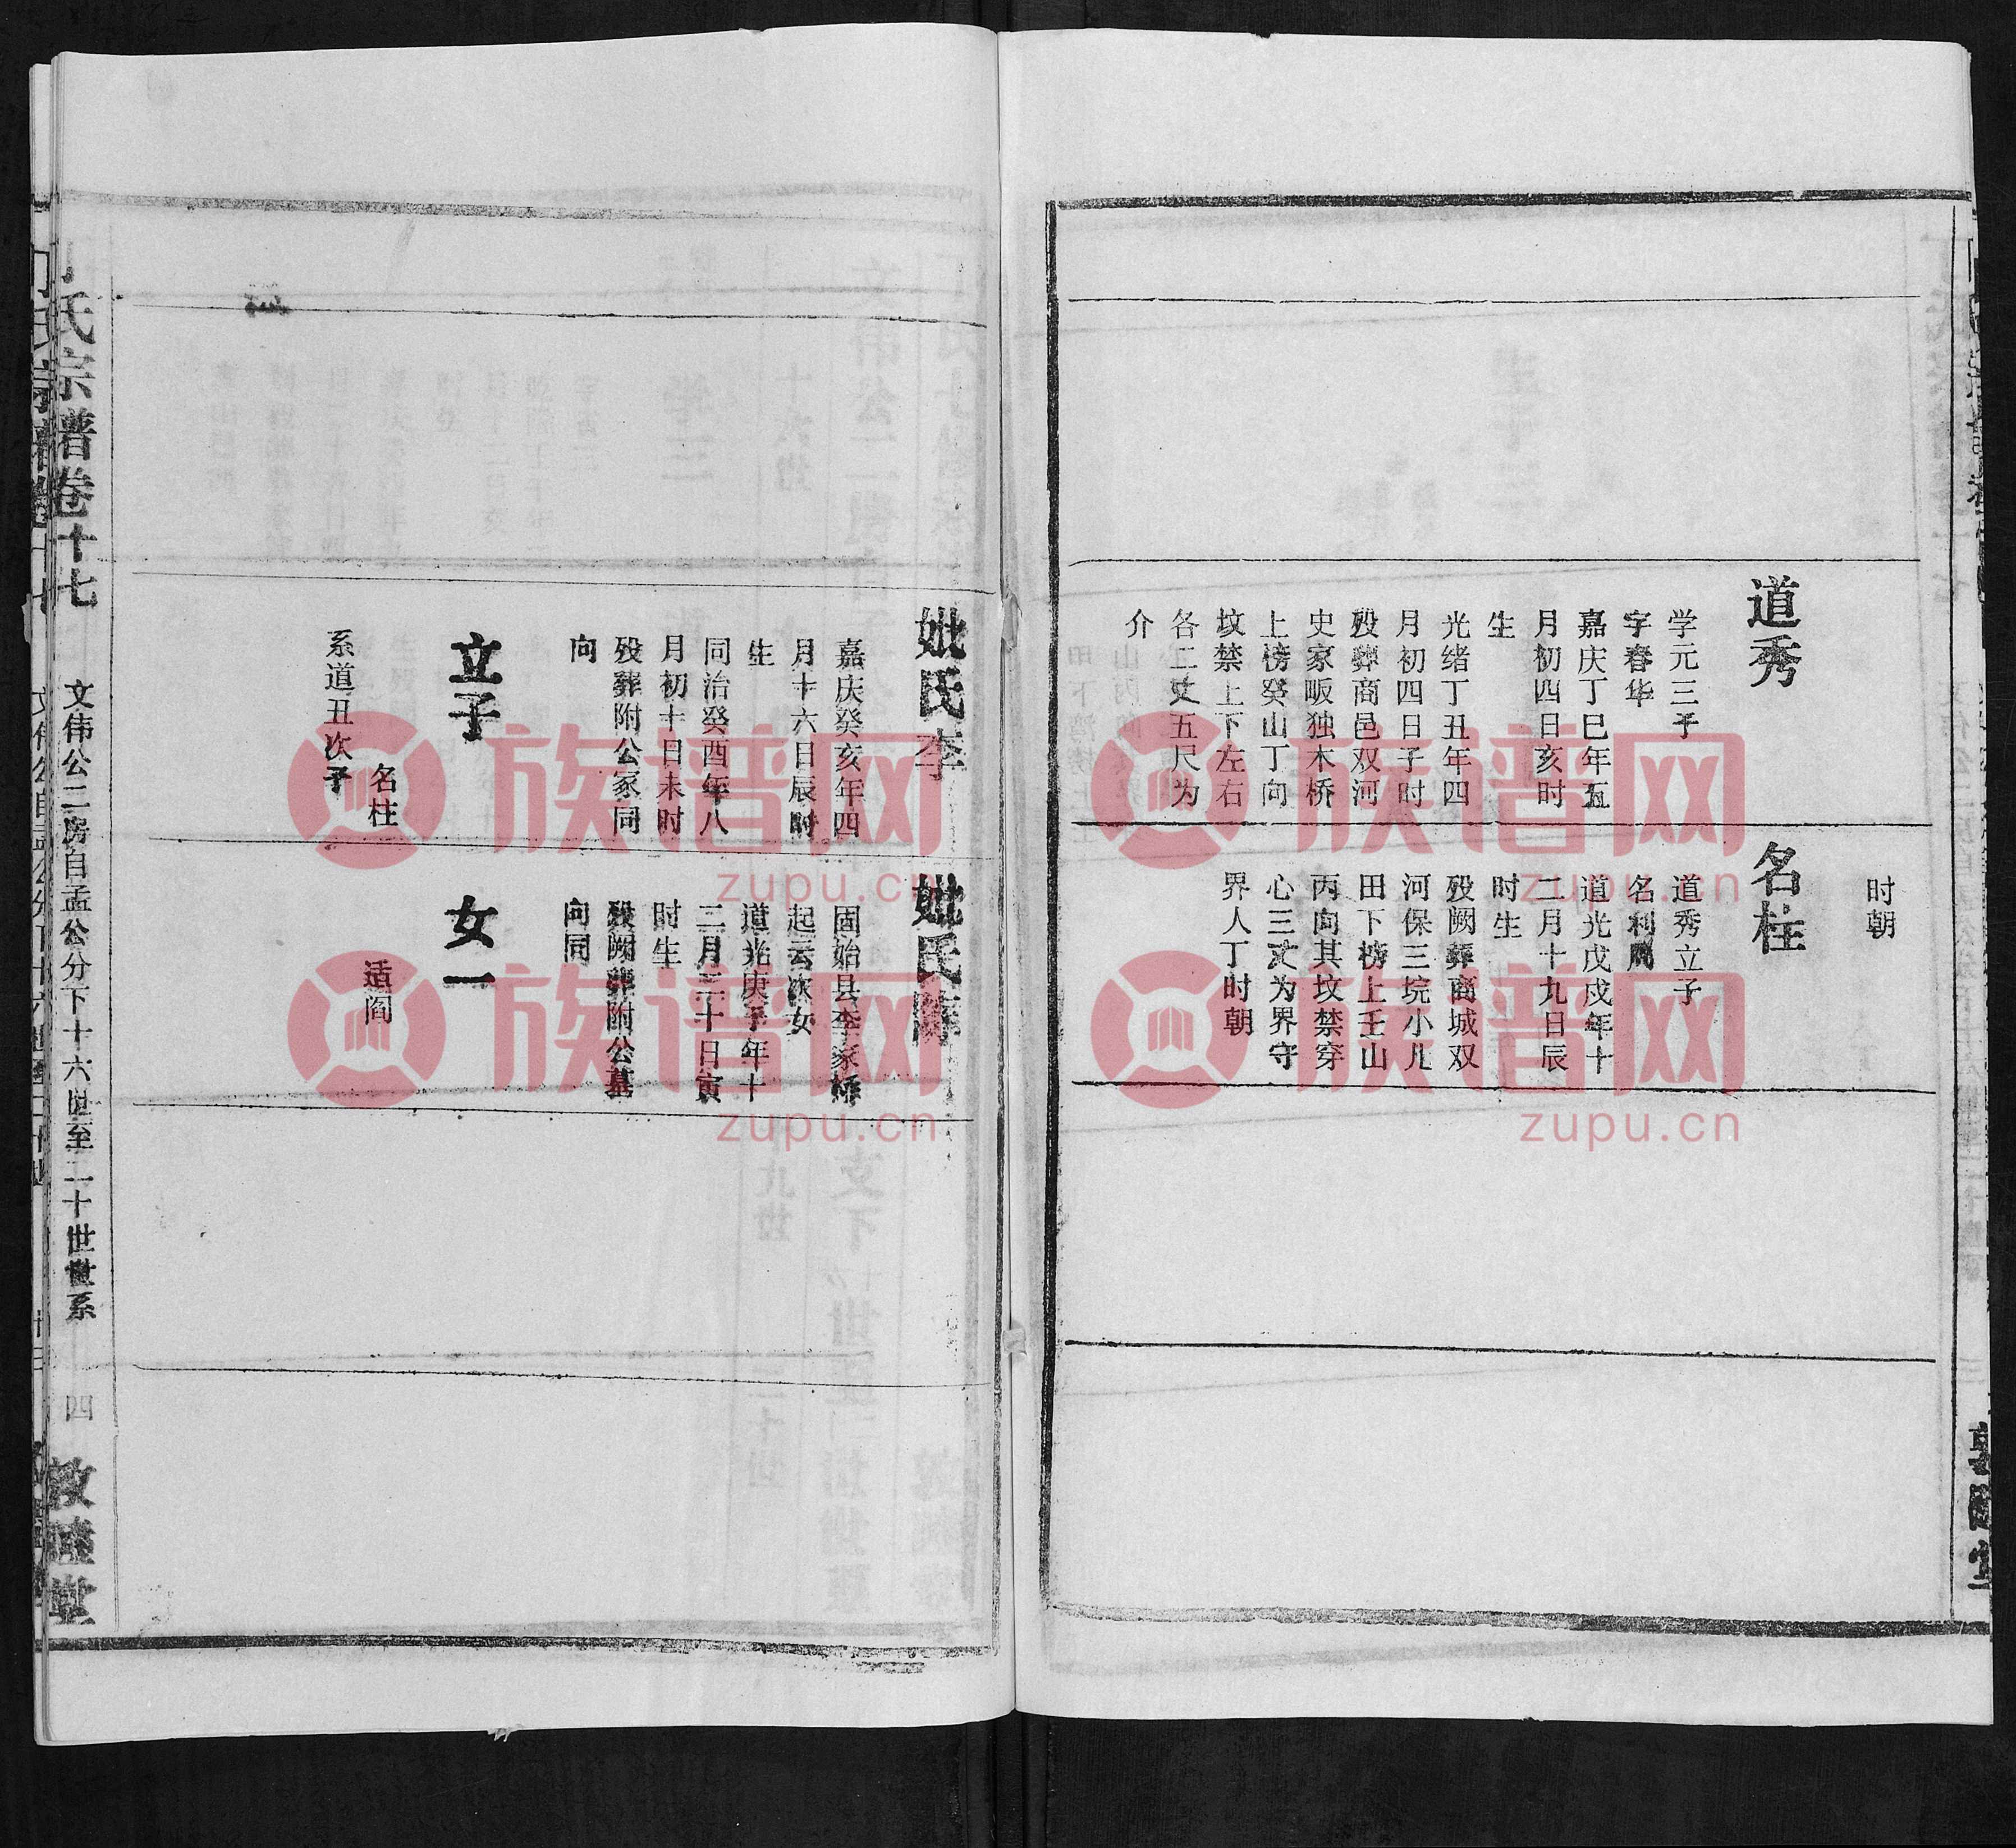 道秀
学元三子
字春华
嘉庆丁巳年五
月初四日亥时
生
光绪丁丑年四
月初四日子时
殁葬商邑双河
史家畈独木桥
上榜癸山丁向
坟禁上下左右
各二丈五尺为
介
时朝
名柱
道秀立子
名利周
道光戊戌年十
二月十九日辰
时生
殁阙葬商城双
河保三垸小儿
田下榜上壬山
丙向其坟禁穿
心三丈为界守
界人丁时朝
妣氏李
嘉庆癸亥年四
月十六日辰时
生
同治癸酉年八
月初十日未时
殁葬附公冢同
向
立子
名柱
系道丑次子
妣氏陈
固始县李家桥
起云次女
道光庚子年十
二月二十日寅
时生
殁阙葬附公墓
向同
女一
适阎
氏宗谱卷十七
文伟公二房自孟公分下十六世至二十世世系
四
敦睦堂
族谱网
zupu.cn
族谱网
zupu.cn
族谱网
zupu.cn
族谱网
zupu.cn